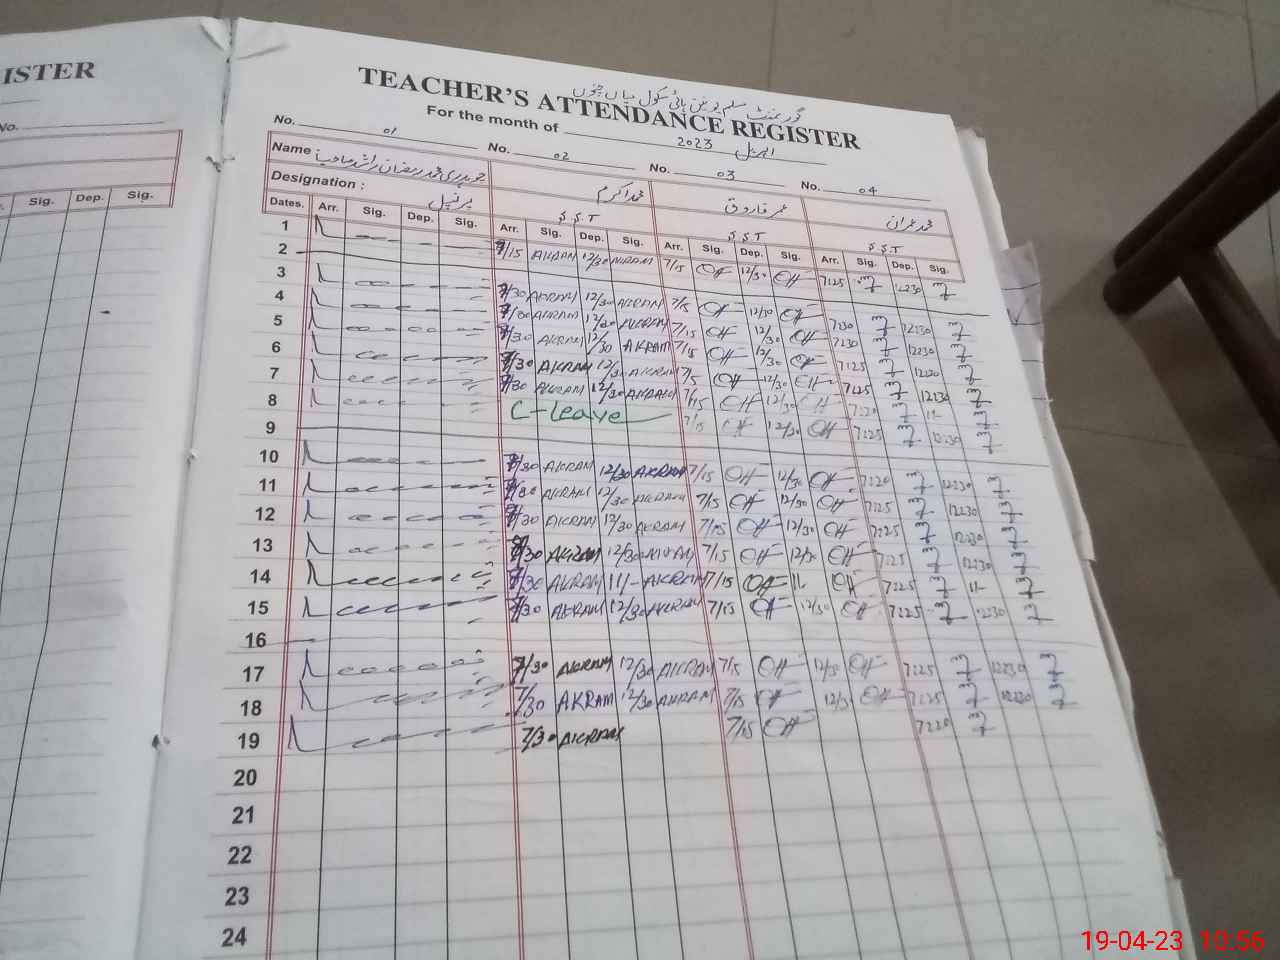 ISTER
No.
Sig. Dep. Sig.
گورنمنٹ مسلم یونین ہائی سکول میاں چنوں
TEACHER'S ATTENDANCE REGISTER
For the month of اپریل 2023
No. 01 No. 02 No. 03 No. 04
Name چوہدری محمد رمضان راشد صاحب محمد اکرم عمر فاروق محمد عمران
Designation : پرنسپل S.S.T S.S.T S.S.T
Dates. Arr. Sig. Dep. Sig. Arr. Sig. Dep. Sig. Arr. Sig. Dep. Sig. Arr. Sig. Dep. Sig.
1 7/15 AKRAM 12/30 AKRAM 7/15 12/30 7:25 12:30
2
3 7/30 AKRAM 12/30 AKRAM 7/15 12/30 7:30 12:30
4 7/30 AKRAM 12/30 AKRAM 7/15 12/30 7:30 12:30
5 7/30 AKRAM 12/30 AKRAM 7/15 12/30 7:25
6 7/30 AKRAM 12/30 AKRAM 7/15 12/30 7:25 12:30
7 7/30 AKRAM 12/30 AKRAM 7/15 12/30 7:20 11-
8 C-Leave 7/15 12/30 7:25 12:30
9
10 7/30 AKRAM 12/30 AKRAM 7/15 12/30 7:20 12:30
11 7/30 AKRAM 12/30 AKRAM 7/15 12/30 7:25 12:30
12 7/30 AKRAM 12/30 AKRAM 7/15 12/30 7:25 12:30
13 7/30 AKRAM 12/30 AKRAM 7/15 12/30 7:25 12:30
14 7/30 AKRAM 11/- AKRAM 7/15 11- 7:25 11-
15 7/30 AKRAM 12/30 AKRAM 7/15 12/30 7:25 12:30
16
17 7/30 AKRAM 12/30 AKRAM 7/15 12/30 7:25 12:30
18 7/30 AKRAM 12/30 AKRAM 7/15 12/30 7:25 12:30
19 7/30 AKRAM 7/15 7:20
20
21
22
23
24
19-04-23 10:56